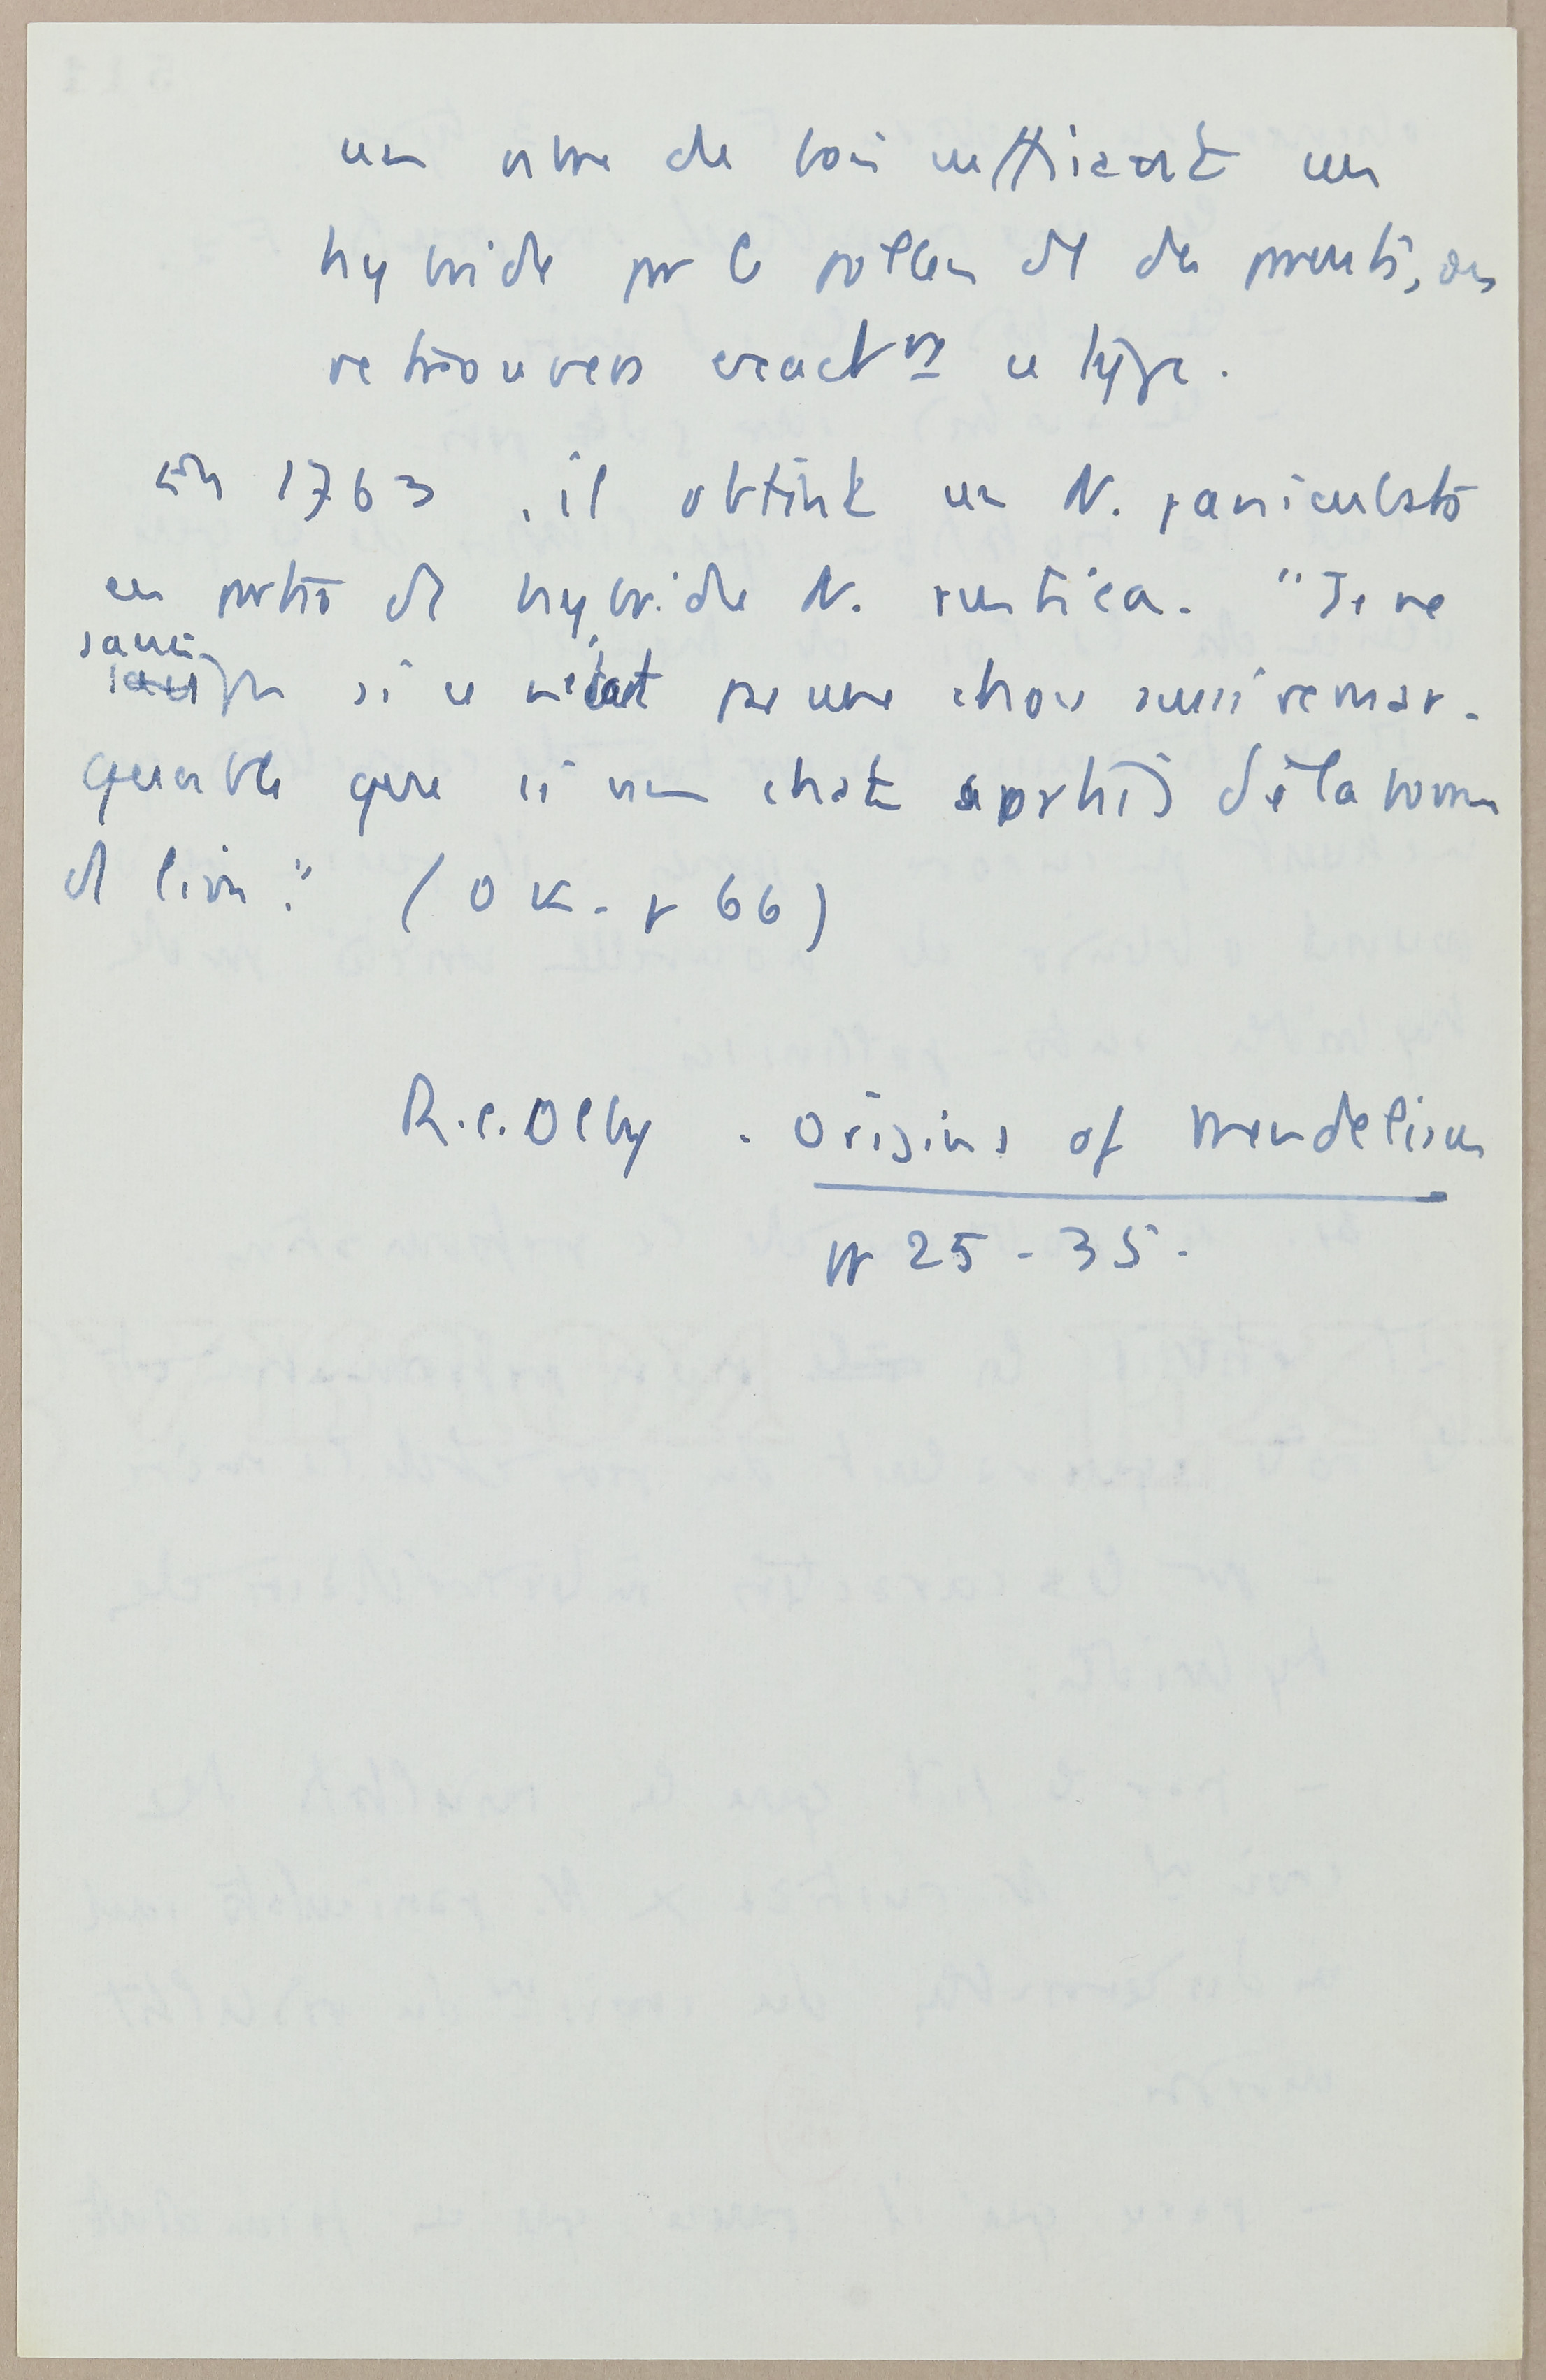 un nbre de fois suffisant un
hybride par le pollen d'1 des parents, on
retrouvera exactmt ce type.
En 1763, il obtint un N. paniculata
en partant d'1 hybride de N. rustica. "Je ne
si ce n'était pas une chose aussi remar-
quable que si un chat sortait de la forme
d'1 lion." (OK. p 66)
R.C. Olby. Origins of Mendelism
pp 25-35.